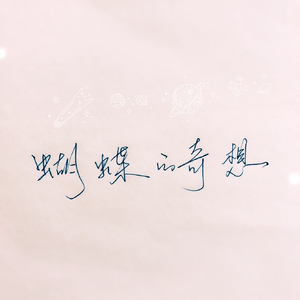 蝴蝶的奇想